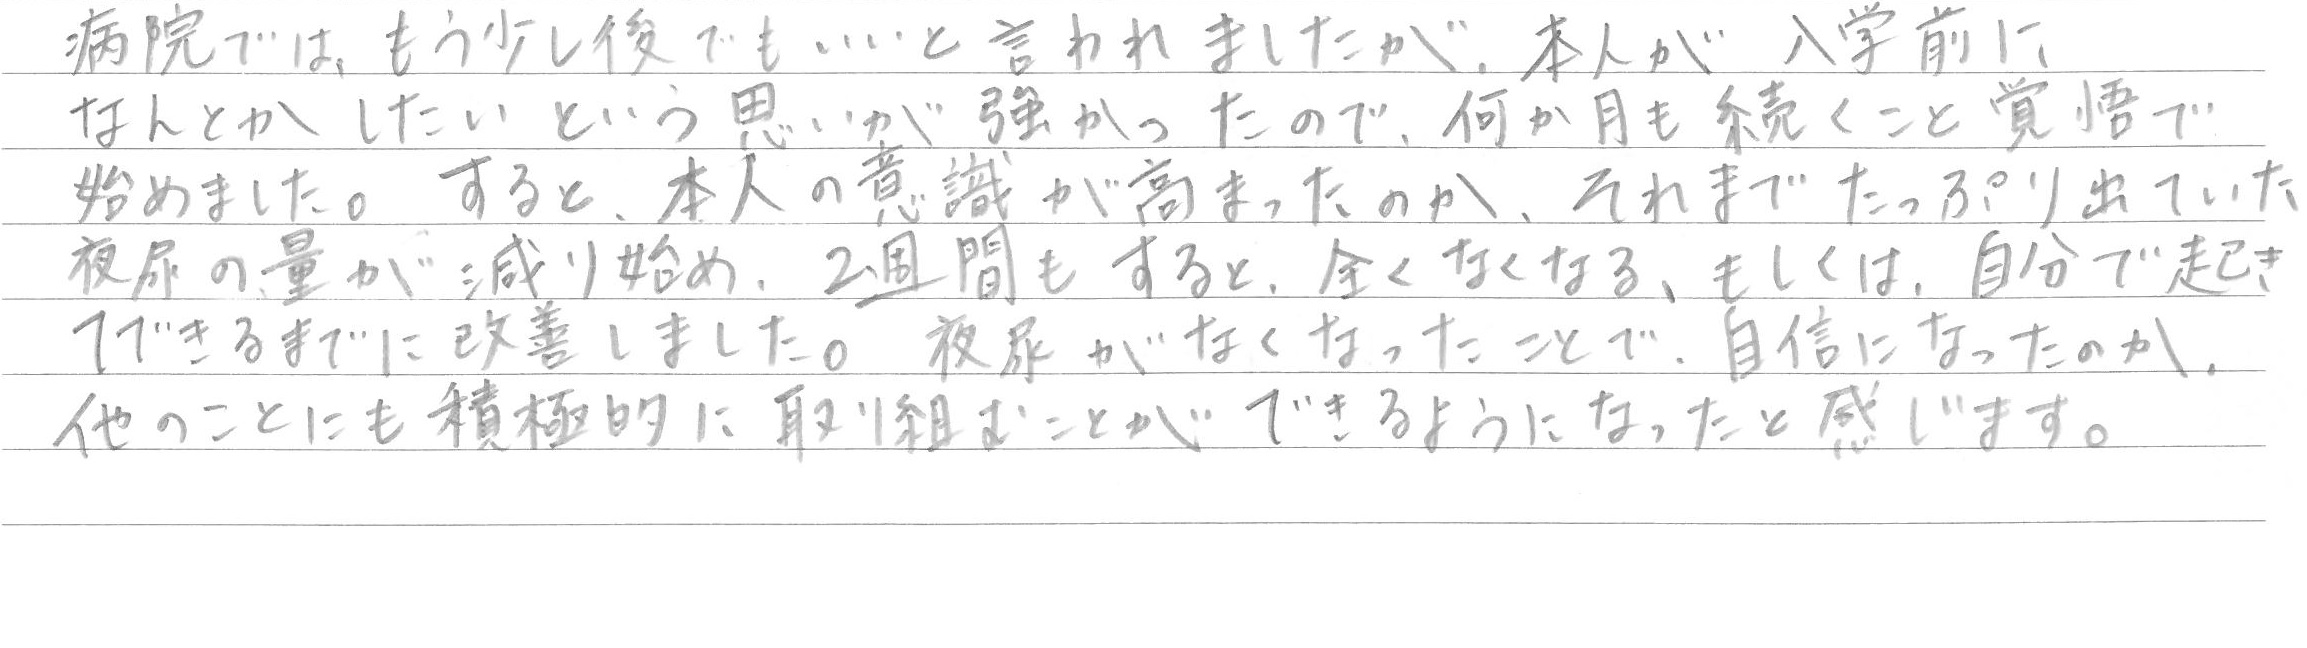 病院では、もう少し後でもいいと言われましたが、本人が入学前に
なんとかしたいという思いが強かったので、何か月も続くこと覚悟で
始めました。すると、本人の意識が高まったのか、それまでたっぷり出ていた
夜尿の量が減り始め、2週間もすると、全くなくなる、もしくは、自分で起き
てできるまでに改善しました。夜尿がなくなったことで、自信になったのか、
他のことにも積極的に取り組むことができるようになったと感じます。